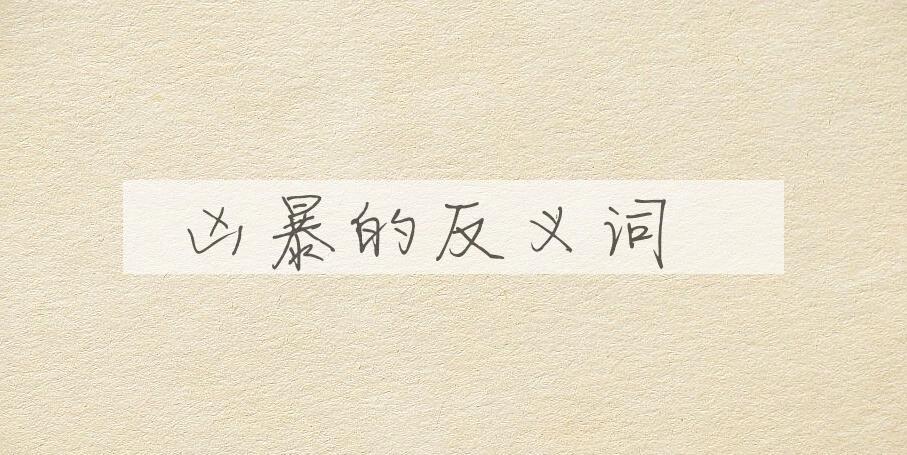 凶暴的反义词